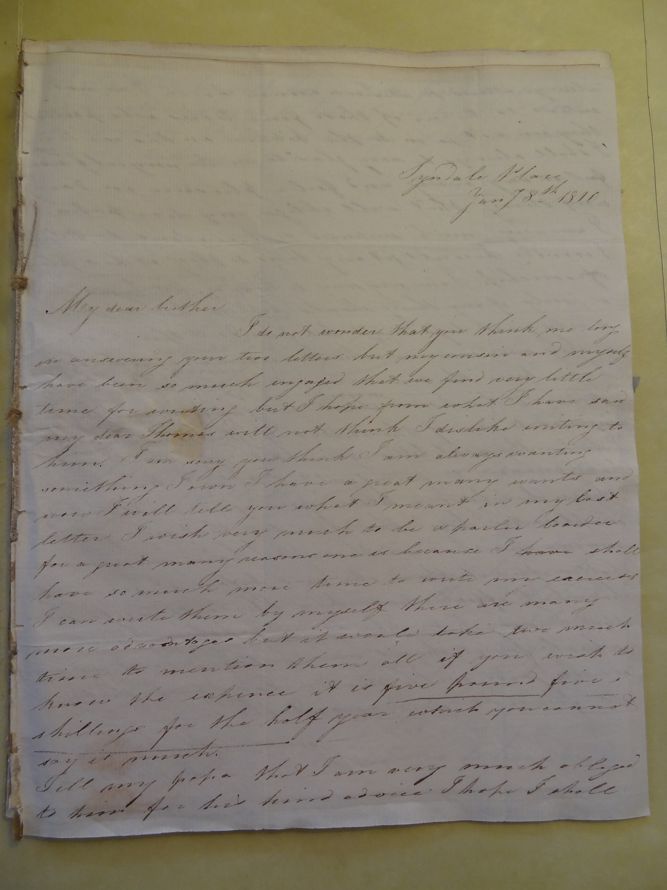 Tyndale Place
Jany 8th 1811
My dear brother
I do not wonder that you think me long
in answering your two letters but my cousin and myself
have been so much engaged that we find very little
time for writing but I hope from what I have said
my dear Thomas will not think I dislike writing to
him. I am sorry you think I am always wanting
something I own I have a great many wants and
now I will tell you what I meant in my last
letter I wish very much to be a parlor boarder
for a great many reasons one is because I have shall
have so much more time to write my exercises
I can write them by myself there are many
more advantages but it would take two much
time to mention them all if you wish to
know the expence it is five pound five
shillings for the half year which you cannot
say is much.
Tell my papa that I am very much obliged
to him for his kind advice I hope I shall